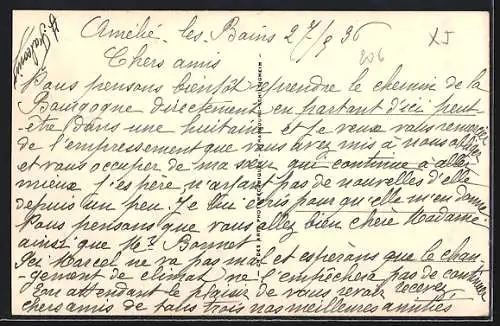 Amélie-les-Bains 27/8 36
Chers amis
Nous pensons bientôt reprendre le chemin de la
Bourgogne directement en partant d'ici peut
être dans une huitaine et je veux vous remercier
de l'empressement que vous avez mis à nous obliger
et vous occuper de ma sœur qui continue à aller
mieux j'espère n'ayant pas de nouvelles d'elle
depuis un peu. Je lui écris pour qu'elle m'en donne
Nous pensons que vous allez bien chère Madame
ainsi que Mr Bonnet
Ici Marcel ne va pas mal et espérons que le chan-
gement de climat ne l'empêchera pas de continuer
En attendant le plaisir de vous revoir recevez
chers amis de tous trois nos meilleures amitiés
206
XJ